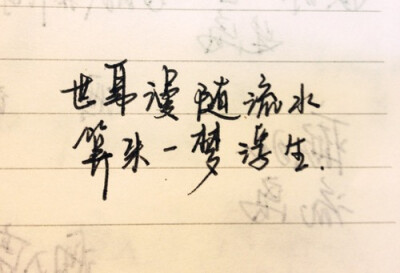 世事漫随流水
算来一梦浮生.